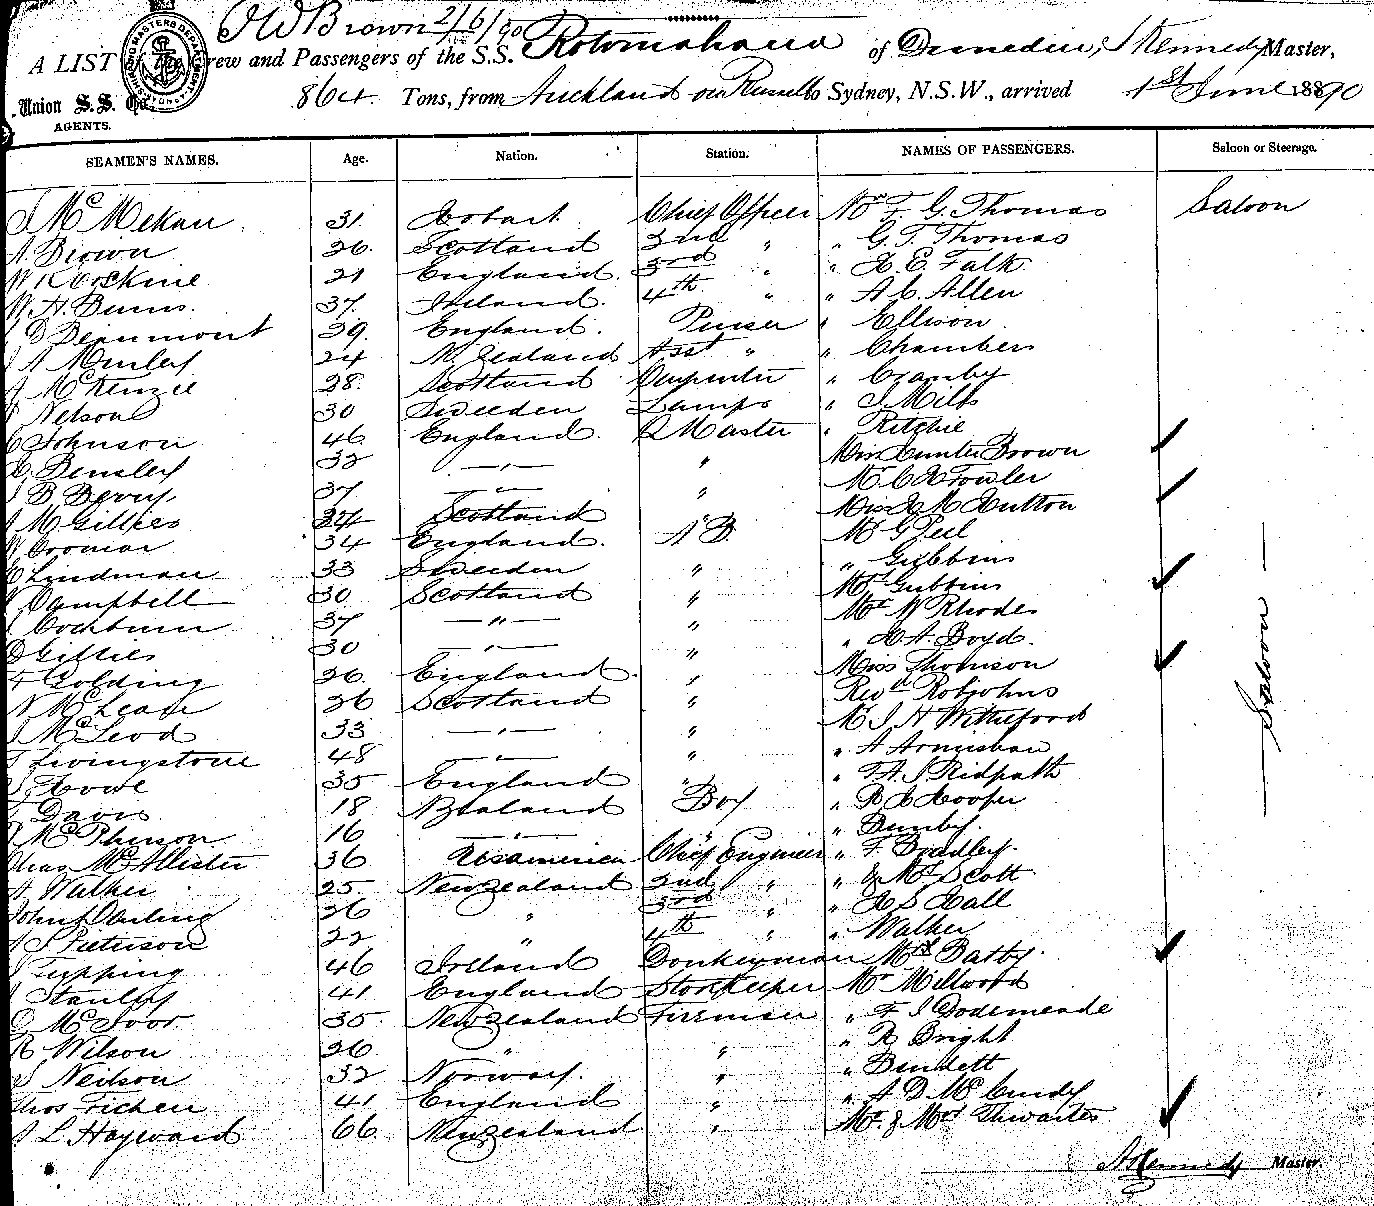 Brown 2/6/90
SHIPPING MASTERS DEPARTMENT SYDNEY
A LIST the Crew and Passengers of the S.S. Rotomahana of Dunedin, Kennedy Master,
Union S. S. Co.
AGENTS.
864 Tons, from Auckland via Russell to Sydney, N.S.W., arrived 1st June 1890
SEAMEN'S NAMES. Age. Nation. Station. NAMES OF PASSENGERS. Saloon or Steerage.
Mc Mekan 31 Hobart Chief Officer Mr F. G. Thomas Saloon
A. Brown 26 Scotland 2nd " " G. T. Thomas
W R Erskine 21 England 3rd " " H. E. Falk
W. H. Burns 37 Ireland 4th " " A. C. Allen
D Beaumont 29 England Purser " Ellison
A 24 N. Zealand Asst " " Chambers
J McKenzie 28 Scotland Carpenter "
Nelson 30 Sweeden Lamps " Mills
C Johnson 46 England Q Master " Ritchie
Bensley 32 — " — " Miss Hunter Brown
B Berry 37 — " — " Mr C H Fowler
M Gillies 27 Scotland Miss H M Hutton
W Cromar 34 England A B Mr G Peel
Lindman 33 Sweeden " " Gibbins
Campbell 30 Scotland " Gubbins
Cockburn 37 — " — " Mr W Rhodes
D Gillies 30 — " — " " H. A. Boyd
F Golding 26 England " Miss Thomson
N McLean 26 Scotland " Revd Robjohns
McLeod 33 — " — " Mr J H Witheford
Livingstone 48 — " — " " A Armishaw
Howe 35 England " " Ridpath
Davis 18 N Zealand Boy " R C Hooper
McPherson 16 — " — " "
Chas McAllister 36 U S america Chief Engineer " F. Bradley
A Walker 25 New Zealand 2nd " " Scott
John 26 " 3rd " " H S Hall
Peterson 22 " 4th " " Walker
Tupping 46 Ireland Donkeyman Mrs Batty
Stanley 41 England Storekeeper Mr Millwood
McIvor 35 New Zealand Fireman " F J Godemeade
R Wilson 26 " " " R Bright
Neilson 32 Norway " "
Thos Tichen 41 England " " A D McCurdy
L Hayward 66 New Zealand " Mr & Mrs Thwaites
— Saloon —
Kennedy Master.